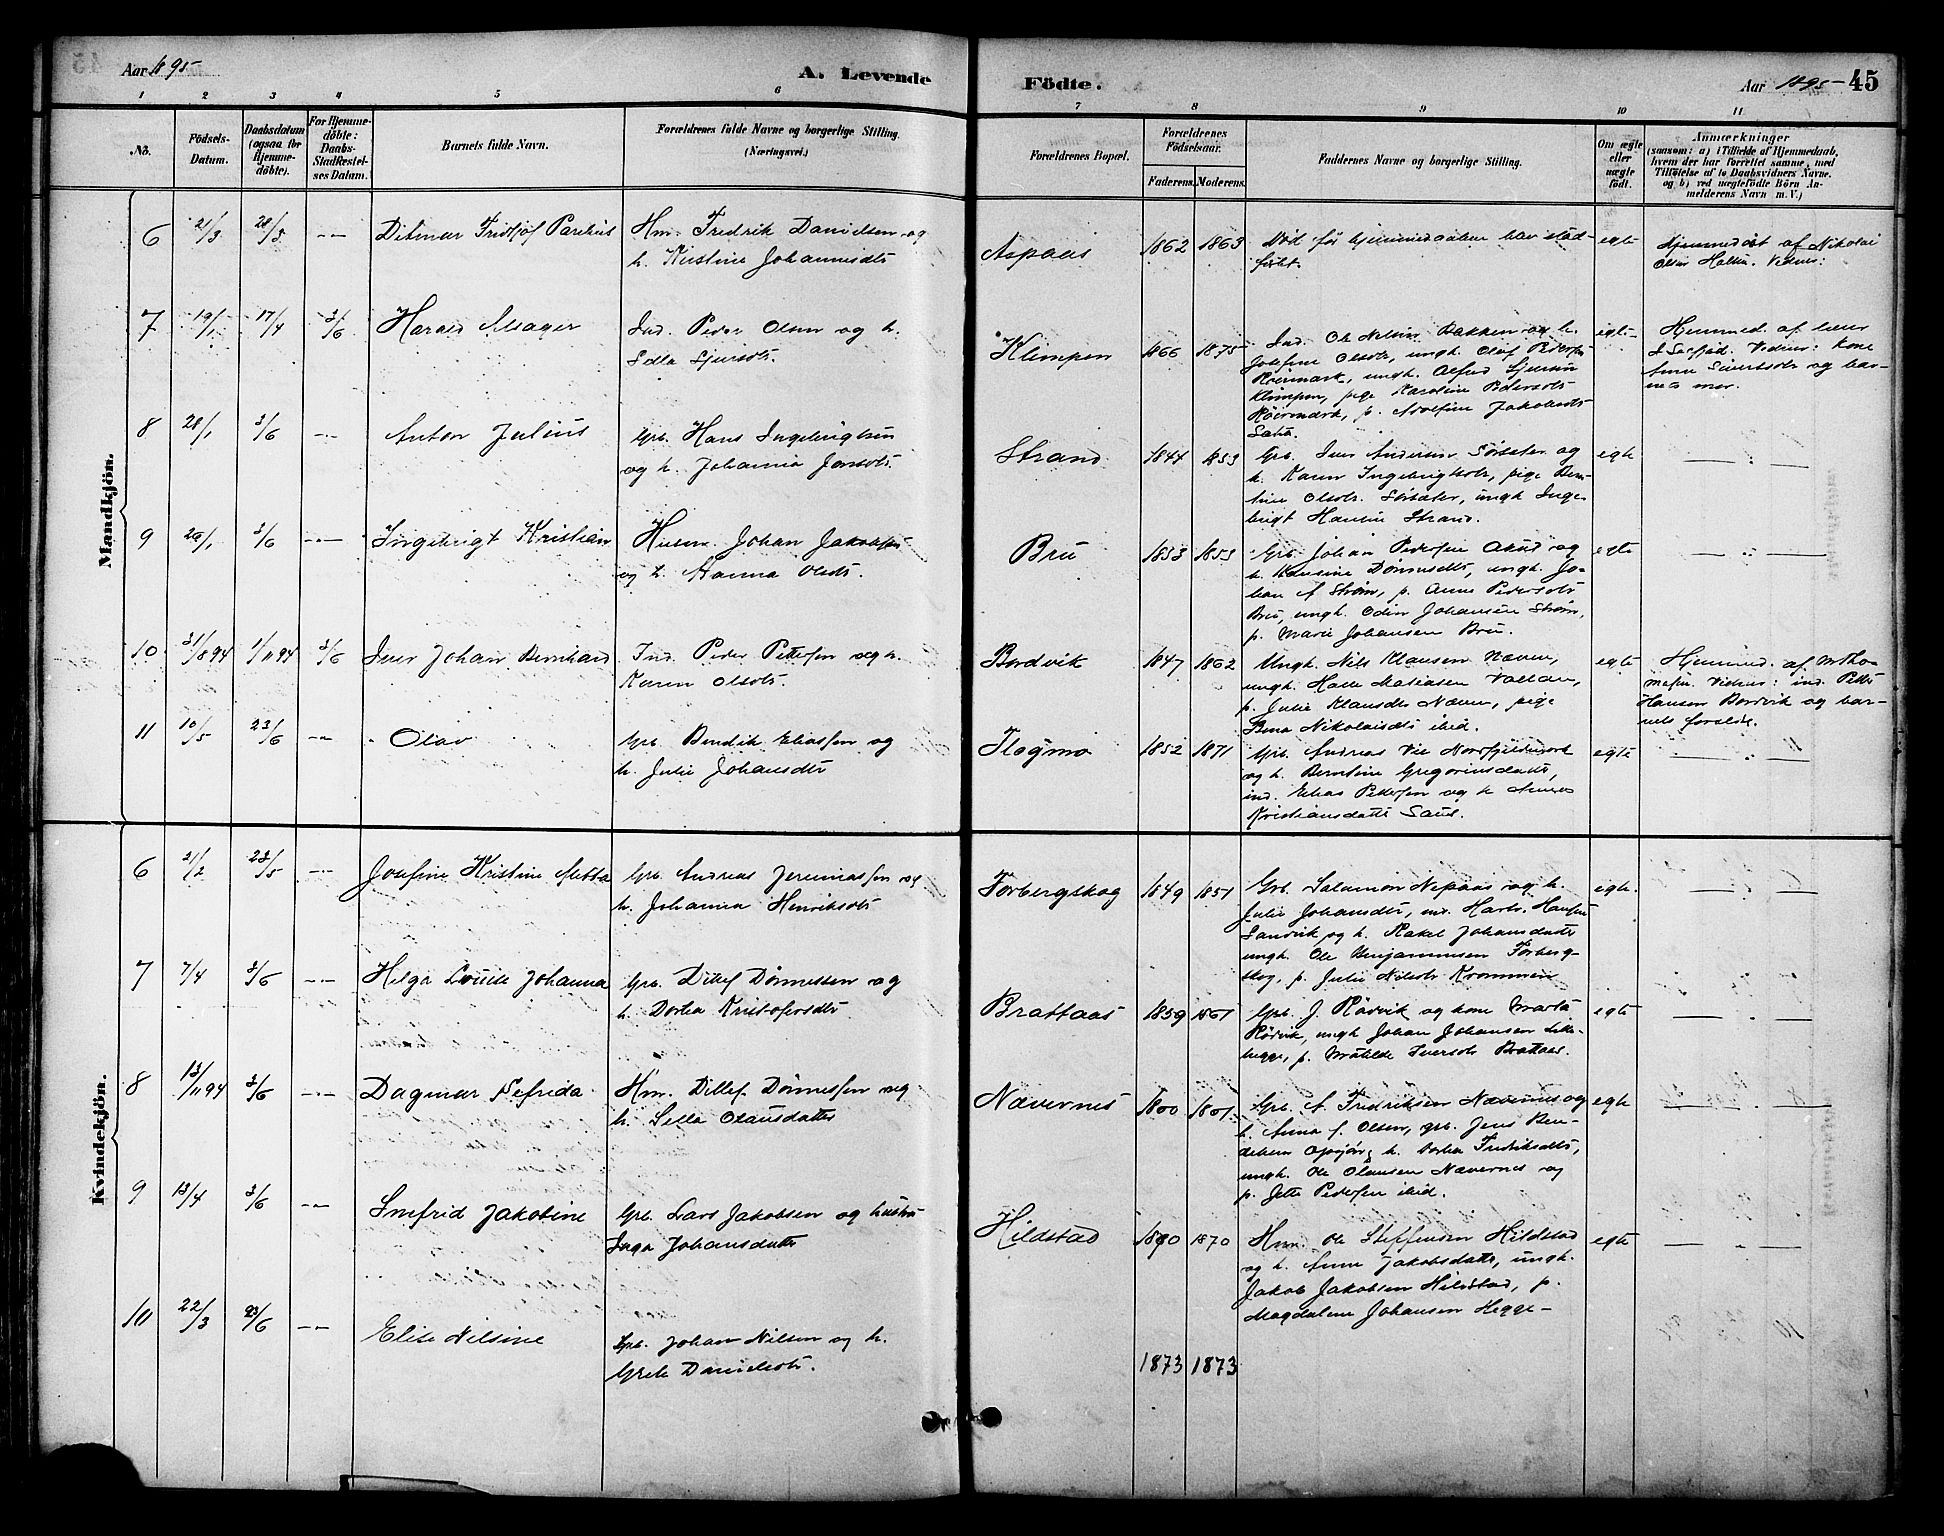 Aar 1895
A. Levende
Födte.
Aar 1895
45
1 2 3 4 5 6 7 8 9 10 11
No.
Födsels-Datum.
Daabsdatum (ogsaa for Hjemme-døbte).
For Hjemme-døbte: Daabs-Stadfæstel-ses Datum.
Barnets fulde Navn.
Forældrenes fulde Navne og borgerlige Stilling.
(Næringsvei.)
Forældrenes Bopæl.
Forældrenes Födselsaar.
Faderens. Moderens.
Faddernes Navne og borgerlige Stilling.
Om ægte eller uægte födt.
Anmærkninger
(saasom: a) i Tilfælde af Hjemmedaab, hvem der har forrettet samme, med Tilføielse af to Daabsvidners Navne, og b) ved uægtefödte Börn An-melderens Navn m. V.)
Mandkjön.
6 21/3 28/5 -"- Ditmar Fridtjof Parelius
Hm. Fredrik Danielsen og
h. Kirstine Johannesdtr
Aspaas 1862 1863
Død før hjemmedaaben blev stad-
fæstet.
egte
Hjemmedøbt af Nikolai
Olsen
7 19/1 17/4 3/6 Harald Alsager
Ind. Peder Olsen og h.
Sella Sjursdtr.
Klimpen 1866 1875
Ind. Ole Nilsen Bakken og h.
Josefine Olsdtr, ungk. Olaf Pedersen
ungk. Alfred Sjursen
Klimpen, pige Karoline Pedersdtr
p. Adolfine Jakobsdtr
egte
Hjemmed. af lærer
Vidner: kone
Anne Sivertsdtr og bar-
nets mor.
8 28/1 3/6 -"- Anton Julius
Grb. Hans Ingebrigtsen
og h. Johanna Jensdtr.
Strand 1844 1853
Grb. Iver Andersen Sørsæter og
h. Karen Ingebrigtsdtr, pige Bern-
tine Olsdtr. Sørsæter, ungk Inge-
brigt Hansen Strand.
egte
9 29/1 3/6 -"- Ingebrigt Kristian
Husm. Johan Jakobsen
og h. Hanna Olsdtr.
Bru 1853 1853
Grb. Johan Pedersen og
h. Dønnesdtr, ungk. Jo-
han A Strøm, p. Anne Pedersdtr
Bru, ungk. Odin Johansen Strøm,
p. Marie Johansen Bru.
egte
10 31/8 94 1/11 94 3/6 Iver Johan Bernhard
Ind. Peder Pettersen og h.
Karen Olsdtr.
Bordvik 1847 1862
Ungk. Nils Klausen Næven,
ungk. Halle Matiasen Vallan,
p. Julie Klausdtr Næven, pige
Bina Nikolaisdtr ibid.
egte
Hjemmed. af M Tho-
mesen. Vidner: ind. Petter
Hansen Bordvik og bar-
nets forældre.
11 10/5 23/6 -"- Olav
Grb. Bendik Eliassen og
h. Julie Johansdtr
Flogmo 1852 1871
Grb. Andreas
og h. Berntine Gregoriusdatter,
ind. Elias Pedersen og h
Kristiansdatter Saus.
egte
Kvindekjön.
6 21/2 23/5 -"- Josefine Kristine Metta
Grb. Andreas Jeremiassen og
h. Johanna Henriksdtr
Forbergskog 1849 1851
Grb. Salamon Nepaas og h.
Julie Johansdtr, ind. Hartv. Hansen
Sandvik og h. Rakel Johansdatter
ungk. Ole Benjaminsen Forberg-
skog, p. Julie Nilsdtr Krommen
egte.
7 7/4 3/6 -"- Helga Lovise Johanna
Grb. Ditlef Dønnessen og
h. Dorthea Kristofersdtr
Brattaas 1859 1861
Grb. J. Rødvik og kone Marta
Rødvik, ungk Johan Johansen
p. Matilde Iversdtr Brattaas.
egte
8 13/11 94 3/6 -"- Dagmar Pefrida
Hm. Ditlef Dønnessen og
h. Sella Olausdatter
Nævernes 1860 1861
Grb. A. Fredriksen Nævernes og
h. Anna f. Olsen, grb. Jens Ben-
diksen h. Dorthea Fredriksdtr,
ungk. Ole Olausen Nævernes og
p. Jette Pedersen ibid.
egte
9 13/4 3/6 -"- Snefrid Jakobine
Grb. Lars Jakobsen og hustru
Inga Johansdatter
Hildstad 1870
Hm. Ole Steffensen Hildstad
og h. Anne Jakobsdatter, ungk.
Jakob Jakobsen Hildstad, p.
Magdalena Johansen Hegge-
egte
10 22/3 23/6 -"- Elise Nilsine
Grb. Johan Nilsen og h.
Grete Danielsdtr.
1873 1873